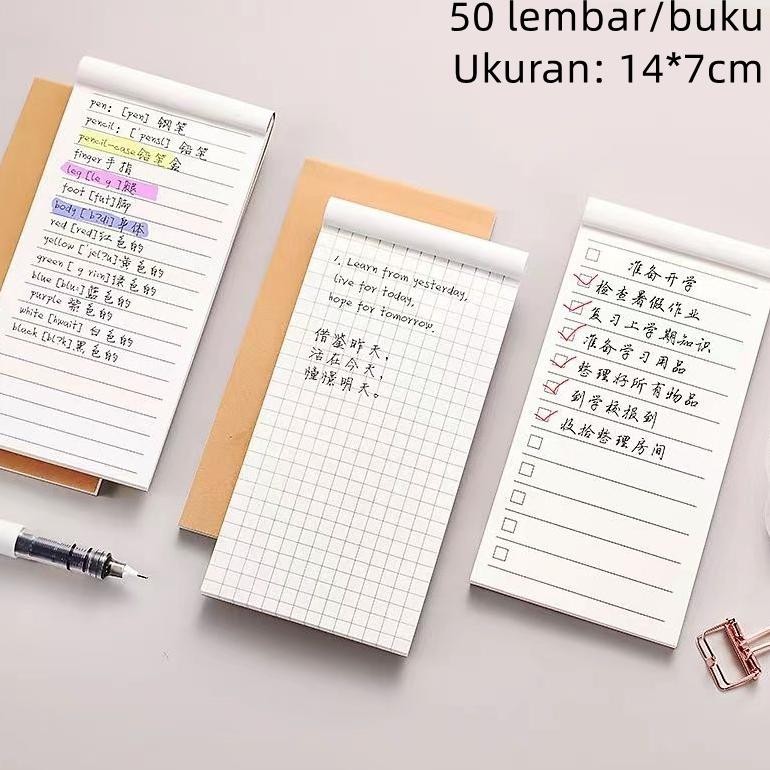 50 lembar/buku
Ukuran: 14*7cm
pen: [pen] 钢笔
pencil: ['pensl] 铅笔
pencil-case 铅笔盒
finger 手指
leg [le g] 腿
foot [fut] 脚
body ['b?di] 身体
red [red] 红色的
yellow ['jel?u] 黄色的
green [ g riin] 绿色的
blue [blu:] 蓝色的
purple 紫色的
white [hwait] 白色的
black [bl?k] 黑色的
1. Learn from yesterday,
live for today,
hope for tomorrow.
借鉴昨天,
活在今天,
憧憬明天。
准备开学
检查暑假作业
复习上学期知识
准备学习用品
整理好所有物品
到学校报到
收拾整理房间